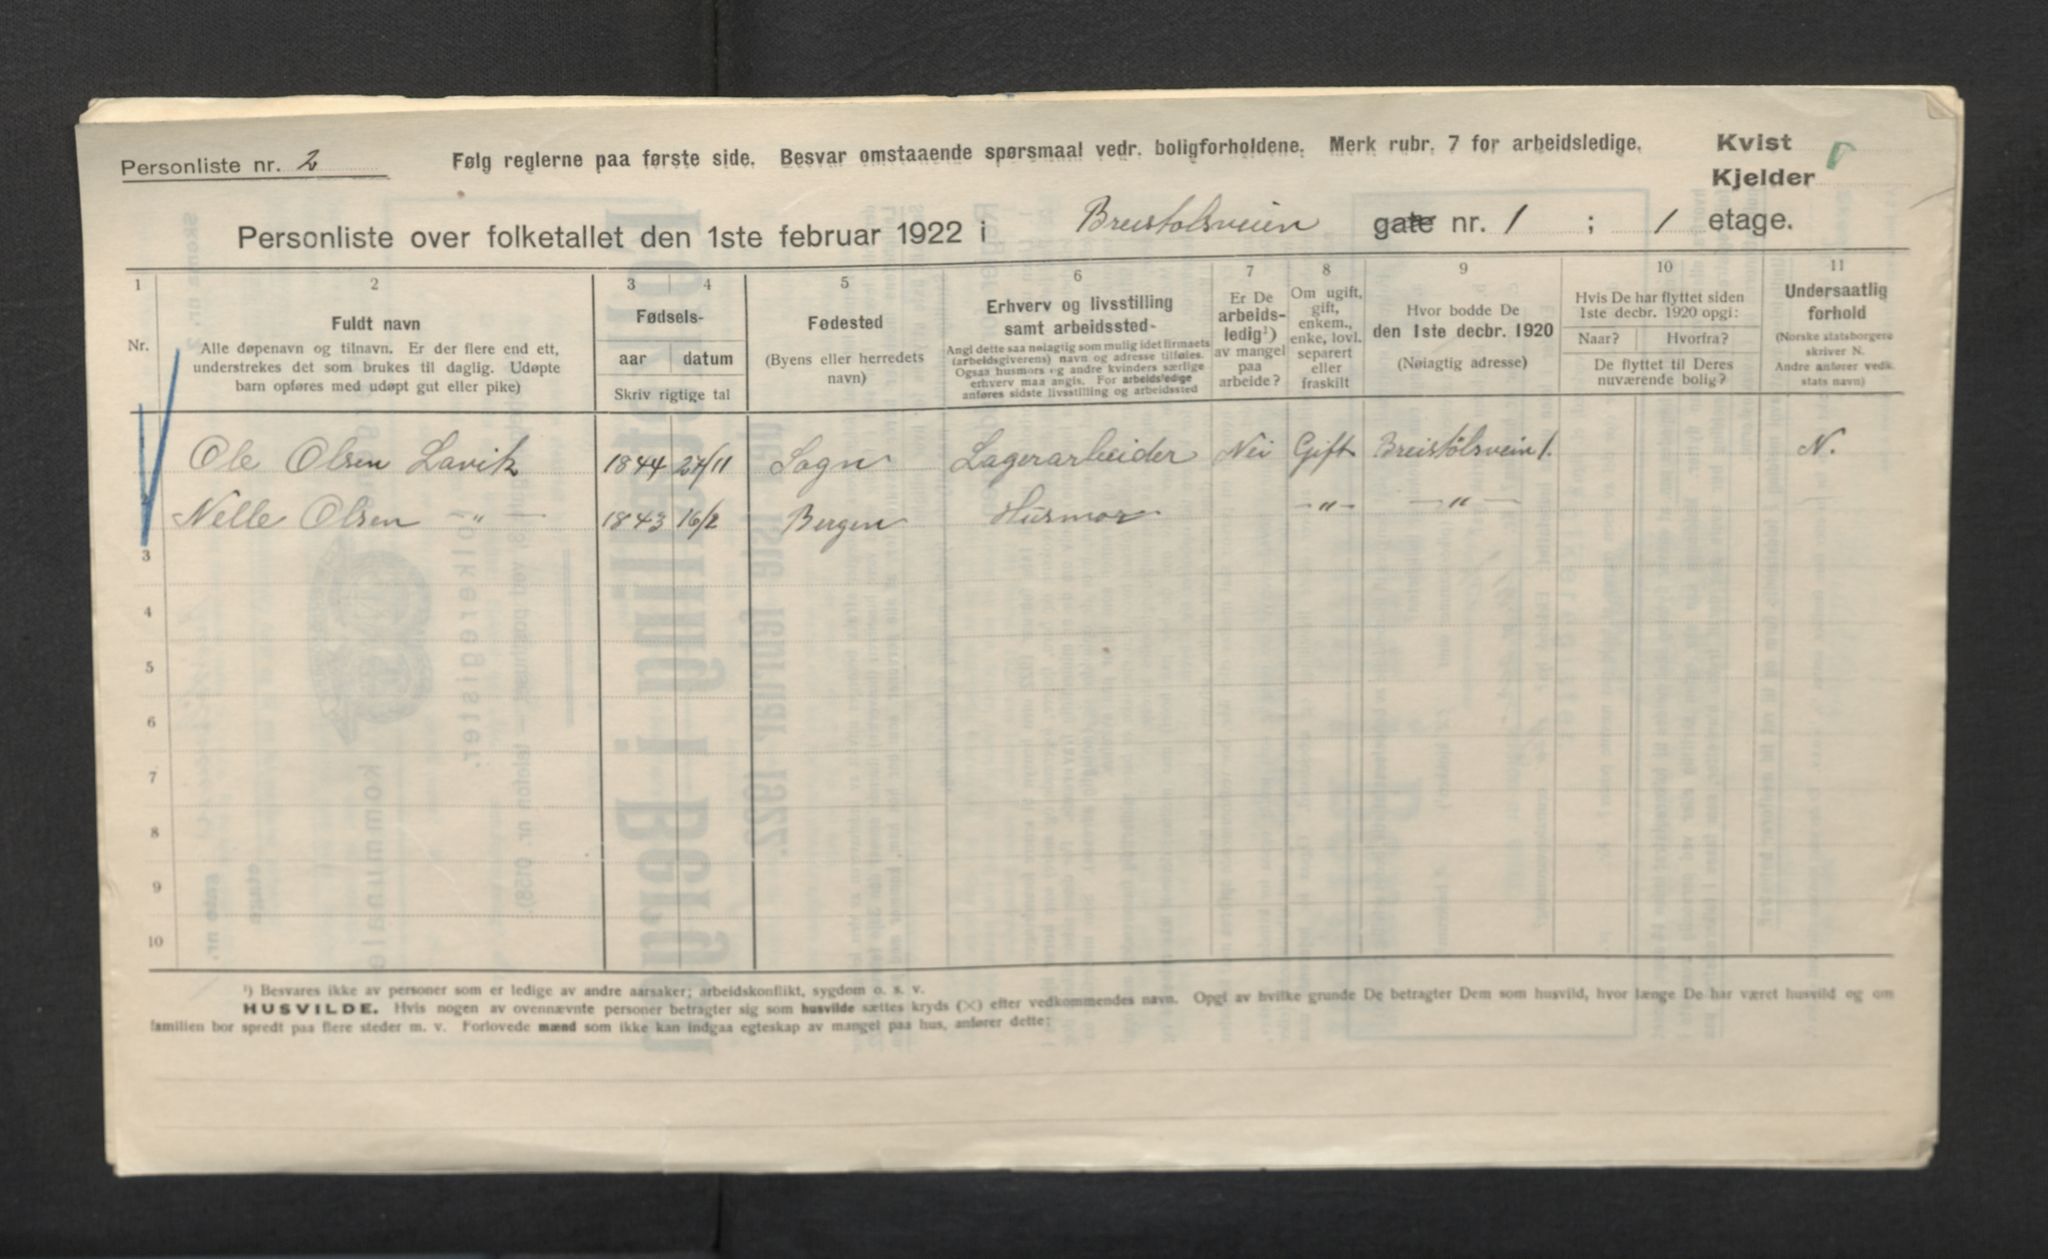 Personliste nr. 2
Følg reglerne paa første side. Besvar omstaaende spørsmaal vedr. boligforholdene. Merk rubr. 7 for arbeidsledige.
Kvist
Kjelder
Personliste over folketallet den 1ste februar 1922 i Breistølsveien gate nr. 1 ; 1 etage.
1 2 3 4 5 6 7 8 9 10 11
Nr.
Fuldt navn
Alle døpenavn og tilnavn. Er der flere end ett,
understrekes det som brukes til daglig. Udøpte
barn opføres med udøpt gut eller pike)
Fødsels-
aar datum
Skriv rigtige tal
Fødested
(Byens eller herredets
navn)
Erhverv og livsstilling
samt arbeidssted-
Angi dette saa nøiagtig som mulig idet firmaets
(arbeidsgiverens) navn og adresse tilføies.
Ogsaa husmors og andre kvinders særlige
erhverv maa angis. For arbeidsledige
anføres sidste livsstilling og arbeidssted
Er De
arbeids-
ledig¹)
av mangel
paa
arbeide?
Om ugift,
gift,
enkem.,
enke, lovl.
separert
eller
fraskilt
Hvor bodde De
den 1ste decbr. 1920
(Nøiagtig adresse)
Hvis De har flyttet siden
1ste decbr. 1920 opgi:
Naar? Hvorfra?
De flyttet til Deres
nuværende bolig?
Undersaatlig
forhold
(Norske statsborgere
skriver N.
Andre anfører vedk.
stats navn)
Ole Olsen Lavik 1844 27/11 Sogn Lagerarbeider Nei Gift Breistølsvein 1. N.
2 Nelle Olsen -"- 1843 16/2 Bergen Husmor -"- -"-
3
4
5
6
7
8
9
10
¹) Besvares ikke av personer som er ledige av andre aarsaker; arbeidskonflikt, sygdom o. s. v.
HUSVILDE. Hvis nogen av ovennævnte personer betragter sig som husvilde sættes kryds (×) efter vedkommendes navn. Opgi av hvilke grunde De betragter Dem som husvild, hvor længe De har været husvild og om
familien bor spredt paa flere steder m. v. Forlovede mænd som ikke kan indgaa egteskap av mangel paa hus, anfører dette: